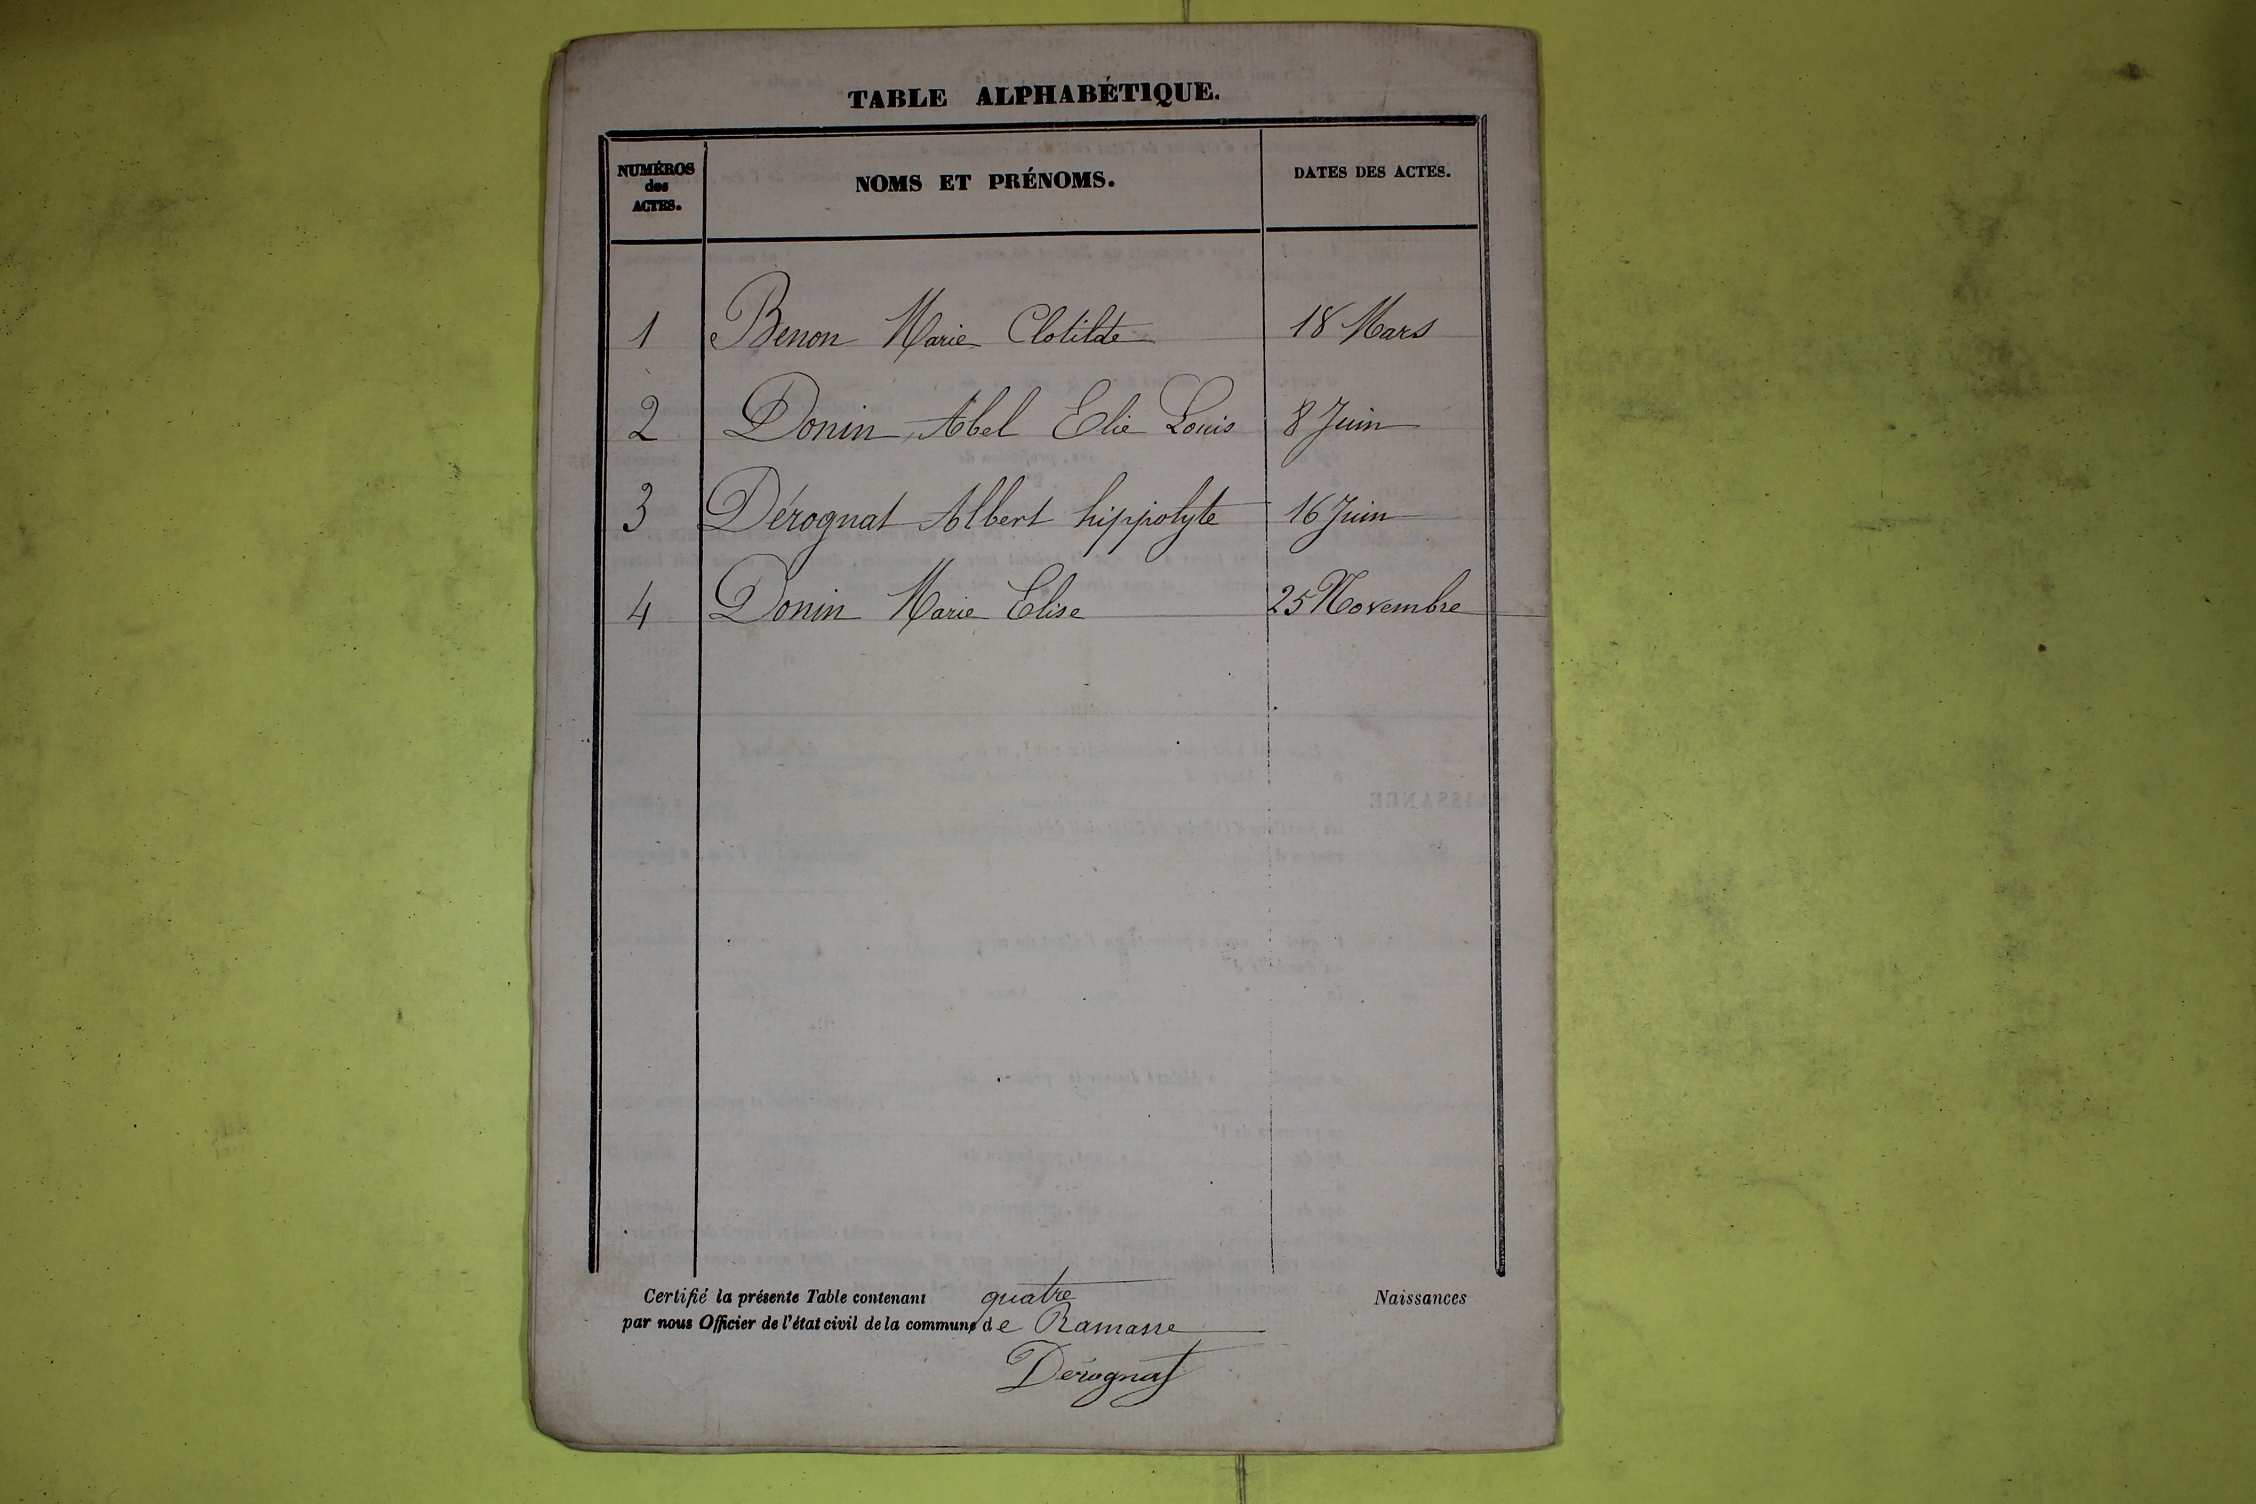 TABLE ALPHABÉTIQUE.
NUMÉROS
des
ACTES.
NOMS ET PRÉNOMS.
DATES DES ACTES.
1 Benon Marie Clotilde 18 Mars
2 Donin Abel Elie Louis 8 Juin
3 Dérognat Albert hippolyte 16 Juin
4 Donin Marie Elise 25 Novembre
Certifié la présente Table contenant quatre Naissances
par nous Officier de l'état civil de la commune de Ramasse
Dérognat